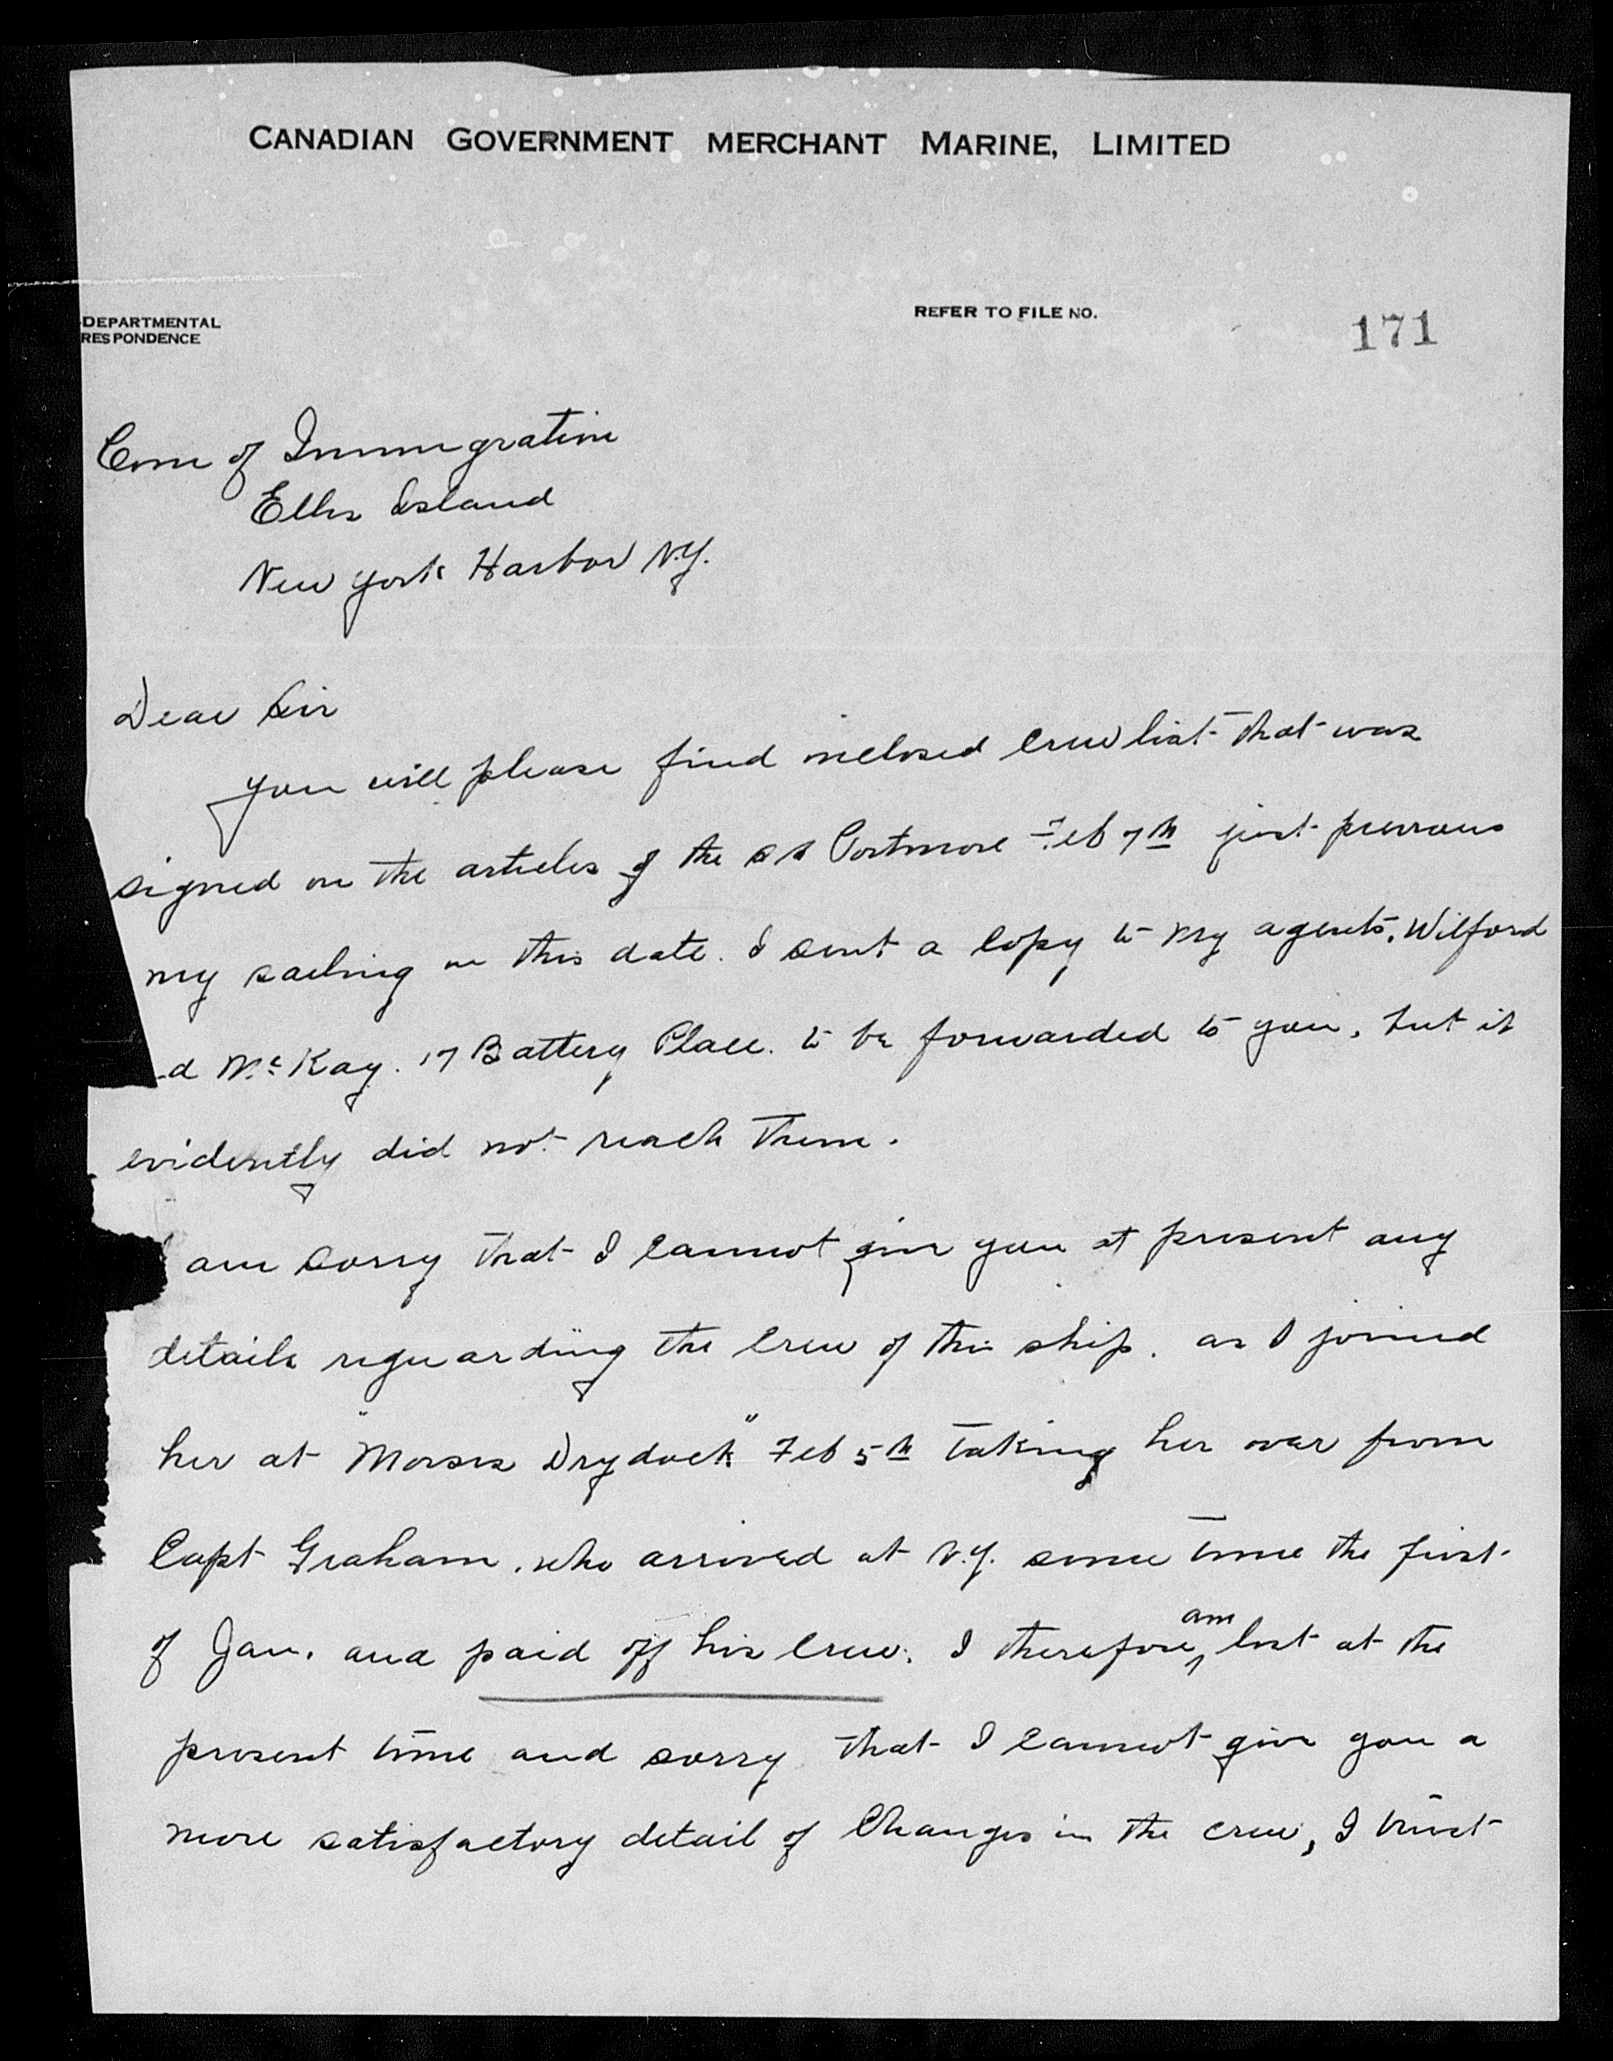 CANADIAN GOVERNMENT MERCHANT MARINE, LIMITED
DEPARTMENTAL
RESPONDENCE
REFER TO FILE NO.
171
Com of Immigration
Ellis Island
New York Harbor N.Y.
Dear Sir
You will please find inclosed crew list that was
signed on the articles of the SS Portmore Feb 7th just previous
my sailing on this date. I sent a copy to my agents, Wilford
d McKay. 17 Battery Place. to be forwarded to you, but it
evidently did not reach them.
am sorry that I cannot give you at present any
details reguarding the crew of this ship. as I joined
her at "Morses Drydock" Feb 5th taking her over from
Capt Graham, who arrived at N.Y. some time the first
of Jan. and paid off his crew. I therefore, am lost at the
present time and sorry that I cannot give you a
more satisfactory detail of Changes in the crew, I trust